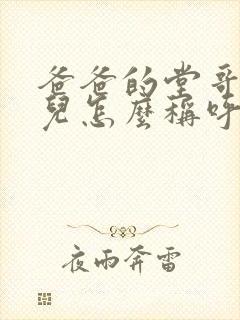 爸爸的堂哥
兒怎麼稱呼
夜雨奔雷